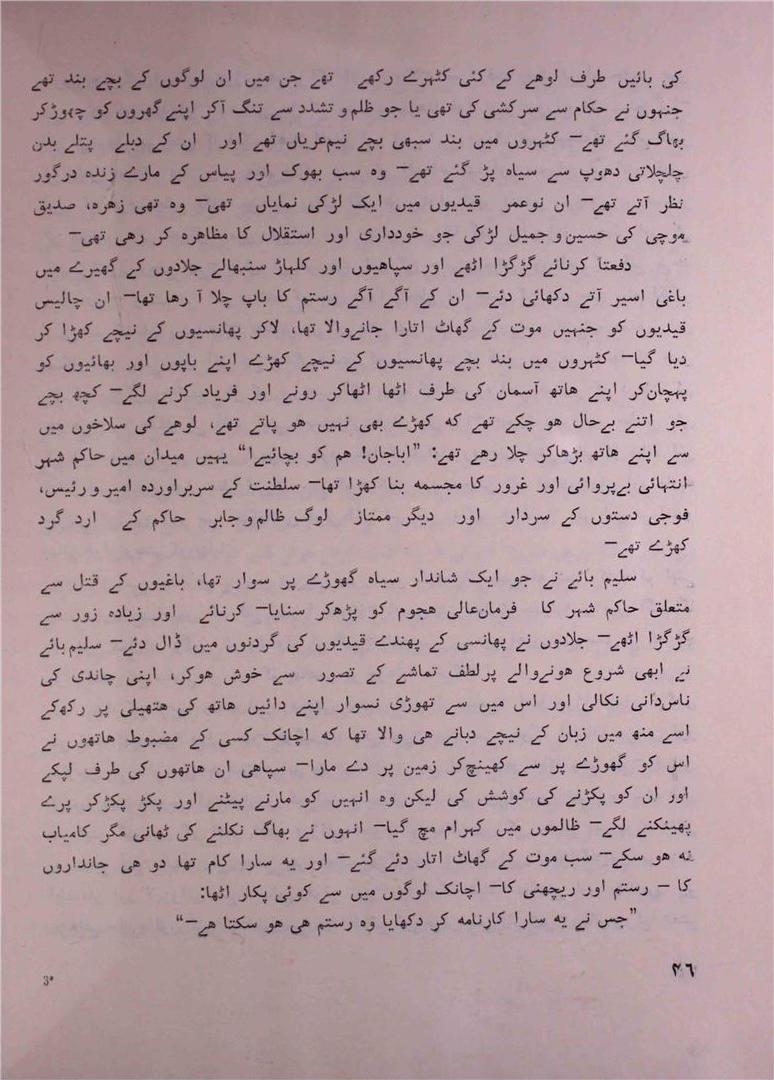 کی بائیں طرف لوھے کے کئی کٹہرے رکھے تھے جن میں ان لوگوں کے بچے بند تھے
جنہوں نے حکام سے سرکشی کی تھی یا جو ظلم و تشدد سے تنگ آکر اپنے گھروں کو چھوڑ کر
بھاگ گئے تھے— کٹہروں میں بند سبھی بچے نیم‌عریاں تھے اور ان کے دبلے پتلے بدن
چلچلاتی دھوپ سے سیاہ پڑ گئے تھے— وہ سب بھوک اور پیاس کے مارے زندہ درگور
نظر آتے تھے— ان نوعمر قیدیوں میں ایک لڑکی نمایاں تھی— وہ تھی زھرہ، صدیق
موچی کی حسین و جمیل لڑکی جو خودداری اور استقلال کا مظاھرہ کر رھی تھی—
دفعتاً کرنائے گڑگڑا اٹھے اور سپاھیوں اور کلہاڑ سنبھالے جلادوں کے گھیرے میں
باغی اسیر آتے دکھائی دئے— ان کے آگے آگے رستم کا باپ چلا آ رھا تھا— ان چالیس
قیدیوں کو جنہیں موت کے گھاٹ اتارا جانے‌والا تھا، لاکر پھانسیوں کے نیچے کھڑا کر
دیا گیا— کٹہروں میں بند بچے پھانسیوں کے نیچے کھڑے اپنے باپوں اور بھائیوں کو
پہچان‌کر اپنے ھاتھ آسمان کی طرف اٹھا اٹھاکر رونے اور فریاد کرنے لگے— کچھ بچے
جو اتنے بےحال ھو چکے تھے که کھڑے بھی نہیں ھو پاتے تھے، لوھے کی سلاخوں میں
سے اپنے ھاتھ بڑھاکر چلا رھے تھے: ”اباجان! ھم کو بچائیے!“ یہیں میدان میں حاکم شہر
انتہائی بےپروائی اور غرور کا مجسمه بنا کھڑا تھا— سلطنت کے سربراوردہ امیر و رئیس،
فوجی دستوں کے سردار اور دیگر ممتاز لوگ ظالم و جابر حاکم کے ارد گرد
کھڑے تھے—
سلیم بائے نے جو ایک شاندار سیاہ گھوڑے پر سوار تھا، باغیوں کے قتل سے
متعلق حاکم شہر کا فرمان‌عالی ھجوم کو پڑھ‌کر سنایا— کرنائے اور زیادہ زور سے
گڑگڑا اٹھے— جلادوں نے پھانسی کے پھندے قیدیوں کی گردنوں میں ڈال دئے— سلیم بائے
نے ابھی شروع ھونے‌والے پرلطف تماشے کے تصور سے خوش ھوکر، اپنی چاندی کی
ناس‌دانی نکالی اور اس میں سے تھوڑی نسوار اپنے دائیں ھاتھ کی ھتھیلی پر رکھ‌کے
اسے منھ میں زبان کے نیچے دبانے ھی والا تھا که اچانک کسی کے مضبوط ھاتھوں نے
اس کو گھوڑے پر سے کھینچ‌کر زمین پر دے مارا— سپاھی ان ھاتھوں کی طرف لپکے
اور ان کو پکڑنے کی کوشش کی لیکن وہ انہیں کو مارنے پیٹنے اور پکڑ پکڑکر پرے
پھینکنے لگے— ظالموں میں کہرام مچ گیا— انہوں نے بھاگ نکلنے کی ٹھانی مگر کامیاب
نه ھو سکے— سب موت کے گھاٹ اتار دئے گئے— اور یه سارا کام تھا دو ھی جانداروں
کا — رستم اور ریچھنی کا— اچانک لوگوں میں سے کوئی پکار اٹھا:
”جس نے یه سارا کارنامه کر دکھایا وہ رستم ھی ھو سکتا ھے—“
۳۶
3*